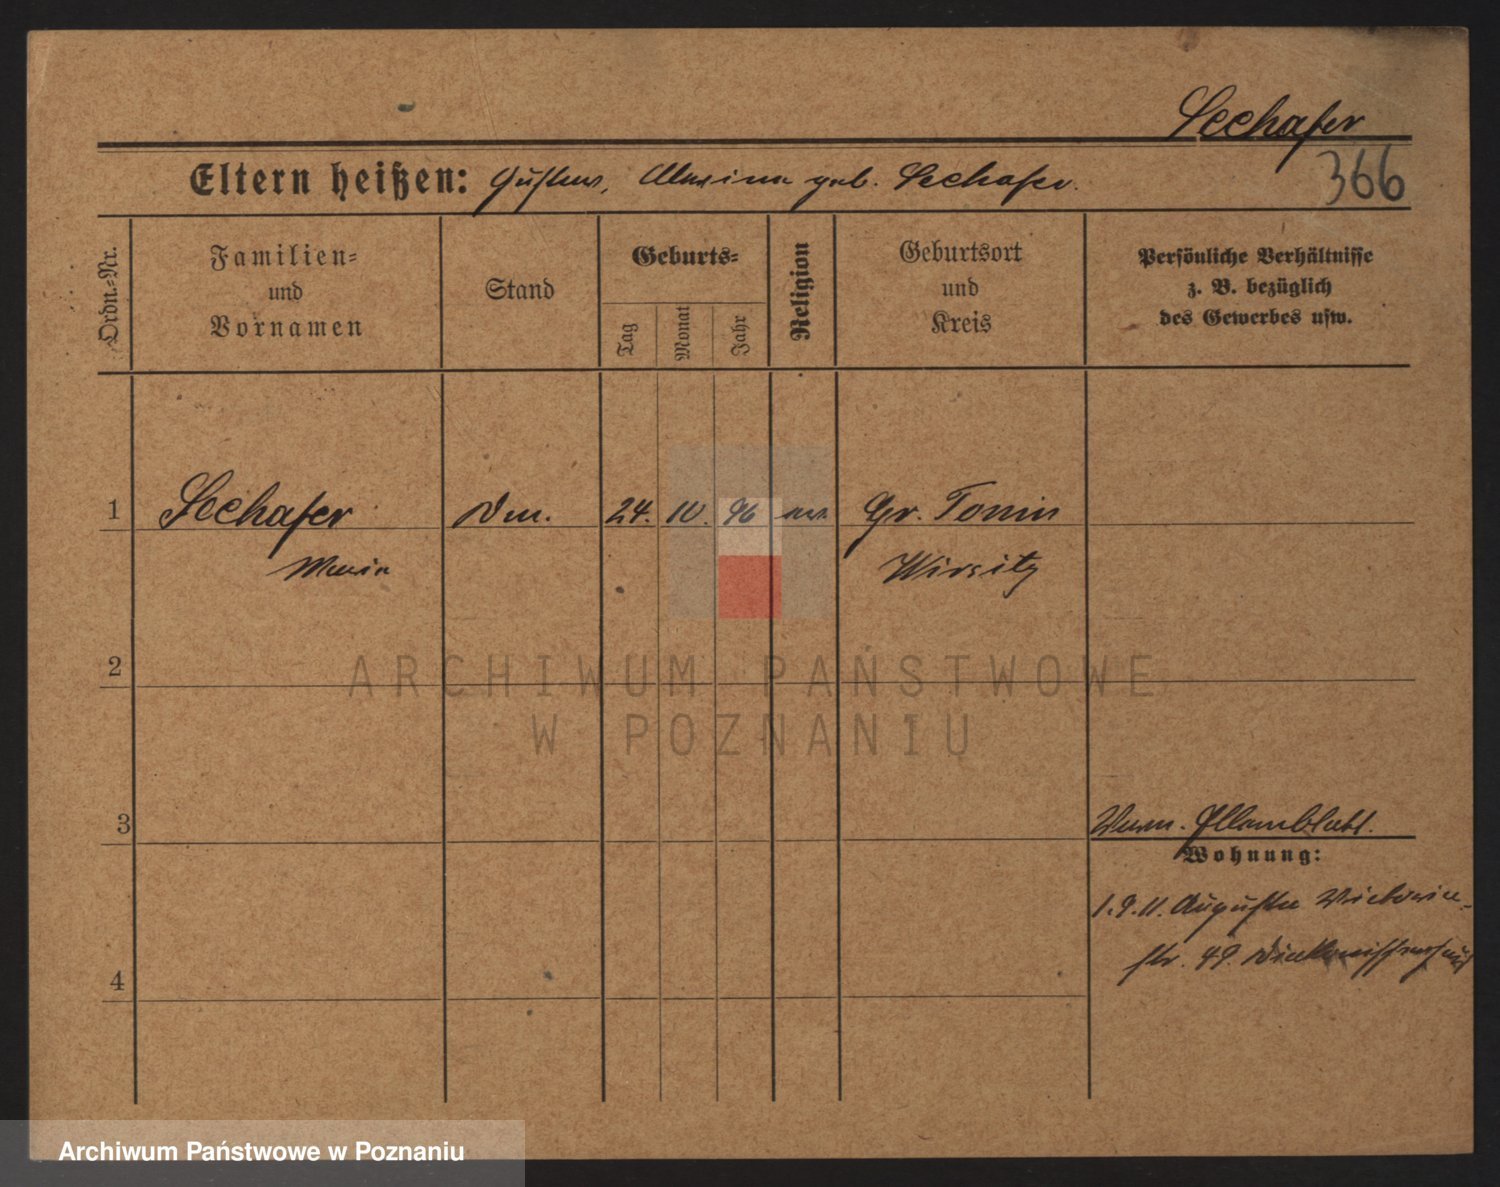 Seehafer
366
Eltern heißen: Gustav, geb. Seehafer.
Ordn.-Nr.
Familien-
und
Vornamen
Stand
Geburts-
Tag
Monat
Jahr
Religion
Geburtsort
und
Kreis
Persönliche Verhältnisse
z. B. bezüglich
des Gewerbes usw.
1 Seehafer 24. 10. 96 Gr. Tonin
Maria Wirsitz
2
3
Wohnung:
1.9.11. Augusta Victoria-
str. 49.
4
ARCHIWUM PAŃSTWOWE
W POZNANIU
Archiwum Państwowe w Poznaniu